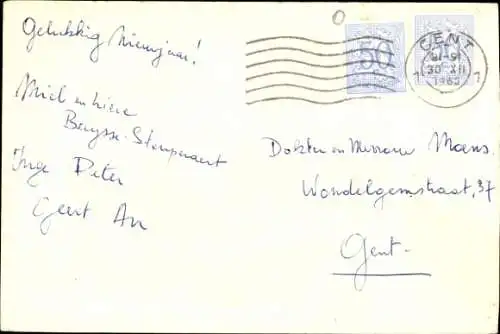 Gelukkig Nieuwjaar!
Miel en
Buysse-Stempenaert
Inge Peter
Geert An
50
50
GENT
15-16
30 XII
1965
1 1
Dokter en Mevrouw Maes
Wondelgemstraat, 37
Gent-